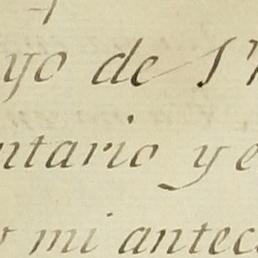 yo de 17
ntario y e
mi antec